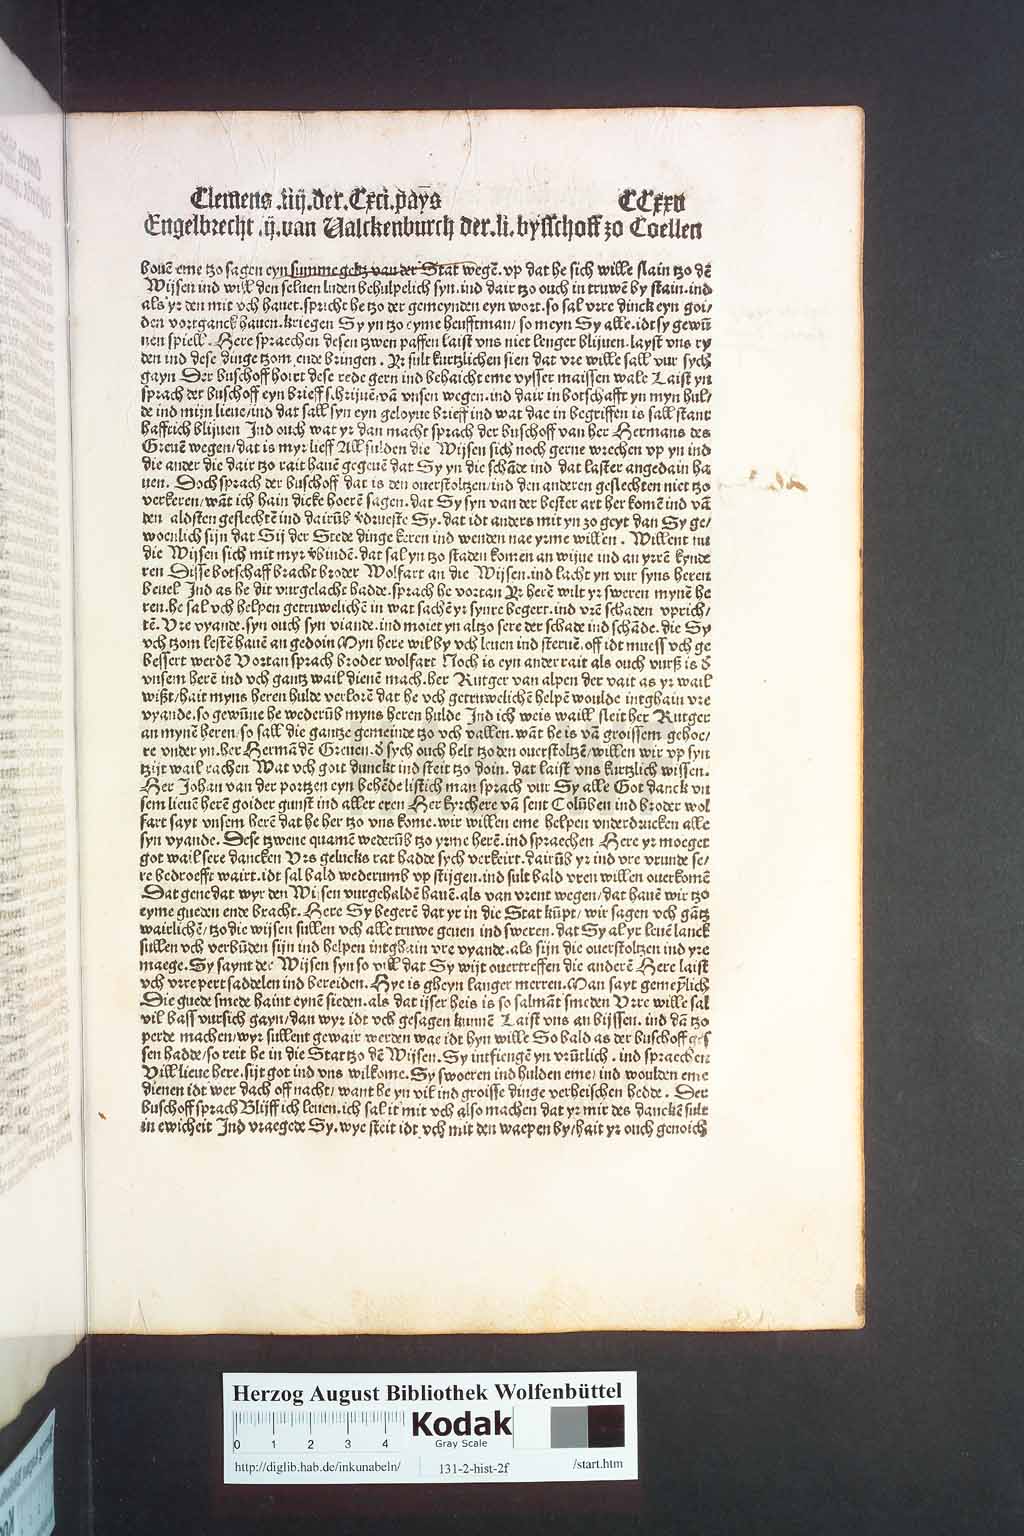 Clemens .iiij.der.Cxci.pays̄ CCxxii
Engelbrecht .ij.van Ualckenburch der.li.bysschoff zo Coellen
bouē eme tzo sagen eyn summe geltz van der Stat wegē. vp dat he sich wille slain tzo dē
Wijsen ind will den seluen luden behulpelich syn.ind dair tzo ouch in truwē by stain.ind
als yr den mit vch hauet.spricht he tzo der gemeynden eyn wort.so sal vrre dinck eyn goi/
den vortganck hauen.kriegen Sy yn tzo eyme heufftman/ so meyn Sy alle.idt sy gewū
nen spiell. Here spraechen desen tzwen paffen laist vns niet lenger blijuen.layst vns ry
den ind dese dinge tzom ende bringen. Yr sult kurtzlichen sien dat vre wille sall vur sych
gayn Der buschoff hoirt dese rede gern ind behaicht eme vysser maissen wale Laist yn
sprach der buschoff eyn brieff schrijuē.vā vnsen wegen.ind dair in botschafft yn myn hul/
de ind mijn lieue/ind dat sall syn eyn geloyue brieff ind wat dae in begriffen is sall stant
hafftich blijuen Ind ouch wat yr dan macht sprach der buschoff van her Hermans des
Greuē wegen/dat is myr lieff All sulden die Wijsen sich noch gerne wrechen vp yn ind
die ander die dair tzo rait hauē gegeuē dat Sy yn die schāde ind dat laster angedain ha
uen. Doch sprach der buschoff dat is den ouerstoltzen/ind den anderen geslechten niet tzo
verkeren/wāt ich hain dicke hoerē sagen.dat Sy syn van der bester art her komē ind vā
den aldsten geslechtē ind dairūb v̄drueste Sy.dat idt anders mit yn zo geyt dan Sy ge/
woenlich sijn dat Sij der Stede dinge keren ind wenden nae yrme willen. Willent nu
die Wijsen sich mit myr v̄bindē.dat sal yn tzo staden komen an wijue ind an yrrē kynde
ren Disse botschaff bracht broder Wolfart an die Wijsen.ind lacht yn vur syns heren
beuel Ind as he dit vurgelacht hadde.sprach he vortan Yr herē wilt yr sweren mynē he
ren.he sal vch helpen getruwelichē in wat sachē yr synre begert.ind vrē schaden vprich/
tē. Vre vyande.syn ouch syn viande.ind moiet yn altzo sere der schade ind schāde.die Sy
vch tzom lestē hauē an gedoin Myn here wil by vch leuen ind steruē.off idt muess vch ge
bessert werdē Vortan sprach broder wolfart Noch is eyn ander rait als ouch vurß is d̄
vnsem herē ind vch gantz wail dienē mach.her Rutger van alpen der vait as yr wail
wißt/hait myns heren hulde verlorē dat he vch getruwelichē helpē woulde intghain vre
vyande.so gewūne he wederūb myns heren hulde Ind ich weis waill sleit her Rutger
an mynē heren/so sall die gantze gemeinde tzo vch vallen.wāt he is vā groissem gehoe/
re vnder yn.her Hermā dē Greuen.d̄ sych ouch helt tzo den ouerstoltzē/willen wir vp syn
tzijt wail rachen Wat vch goit dunckt ind steit tzo doin. dat laist vns kurtzlich wissen.
Her Johan van der portzen eyn behēde listich man sprach vur Sy alle Got danck vn
sem lieuē herē goider gunst ind aller eren Her kyrchere vā sent Colūben ind broder wol
fart sayt vnsem herē dat he her tzo vns kome.wir willen eme helpen vnderdrucken alle
syn vyande. Dese tzwene quamē wederūb tzo yrme herē.ind spraechen Here yr moeget
got wail sere dancken Vrs gelucks rat hadde sych verkeirt.dairūb yr ind vre vrunde se/
re bedroefft wairt.idt sal bald wederumb vp stijgen.ind sult bald vren willen ouerkomē
Dat gene dat wyr den Wijsen vurgehaldē hauē.als van vrent wegen/dat hauē wir tzo
eyme gueden ende bracht. Here Sy begerē dat yr in die Stat kūpt/ wir sagen vch gātz
wairlichē/ tzo die wijsen sullen vch alle truwe geuen ind sweren.dat Sy al yr leuē lanck
sullen vch verbūden sijn ind helpen intghain vre vyande.als sijn die ouerstoltzen ind yre
maege.Sy saynt der Wijsen syn so vill dat Sy wijt ouertreffen die anderē Here laist
vch vrre pert saddelen ind bereiden. Hye is gheyn langer merren.Man sayt gemeȳlich
Die guede smede haint eynē sieden.als dat ijser heis is so salmāt smeden Vrre wille sal
vil bass vursich gayn/dan wyr idt vch gesagen kunnē Laist vns an bijssen. ind dā tzo
perde machen/wyr sullent gewair werden wae idt hyn wille So bald as der buschoff ges
sen hadde/so reit he in die Stat tzo dē Wijsen.Sy intfiengē yn vrūtlich . ind spraechen
Vill lieue here.sijt got ind vns wilkome.Sy swoeren ind hulden eme/ ind woulden eme
dienen idt wer dach off nacht/ want he yn vil ind groisse dinge verheischen hedde. Der
buschoff sprach Blijff ich leuen.ich sal it mit vch also machen dat yr mit des danckē sult
in ewicheit Ind vraegede Sy.wye steit idt vch mit den waepen by/hait yr ouch genoich
Herzog August Bibliothek Wolfenbüttel
0 1 2 3 4 Kodak
Gray Scale
http://diglib.hab.de/inkunabeln/ 131-2-hist-2f /start.htm